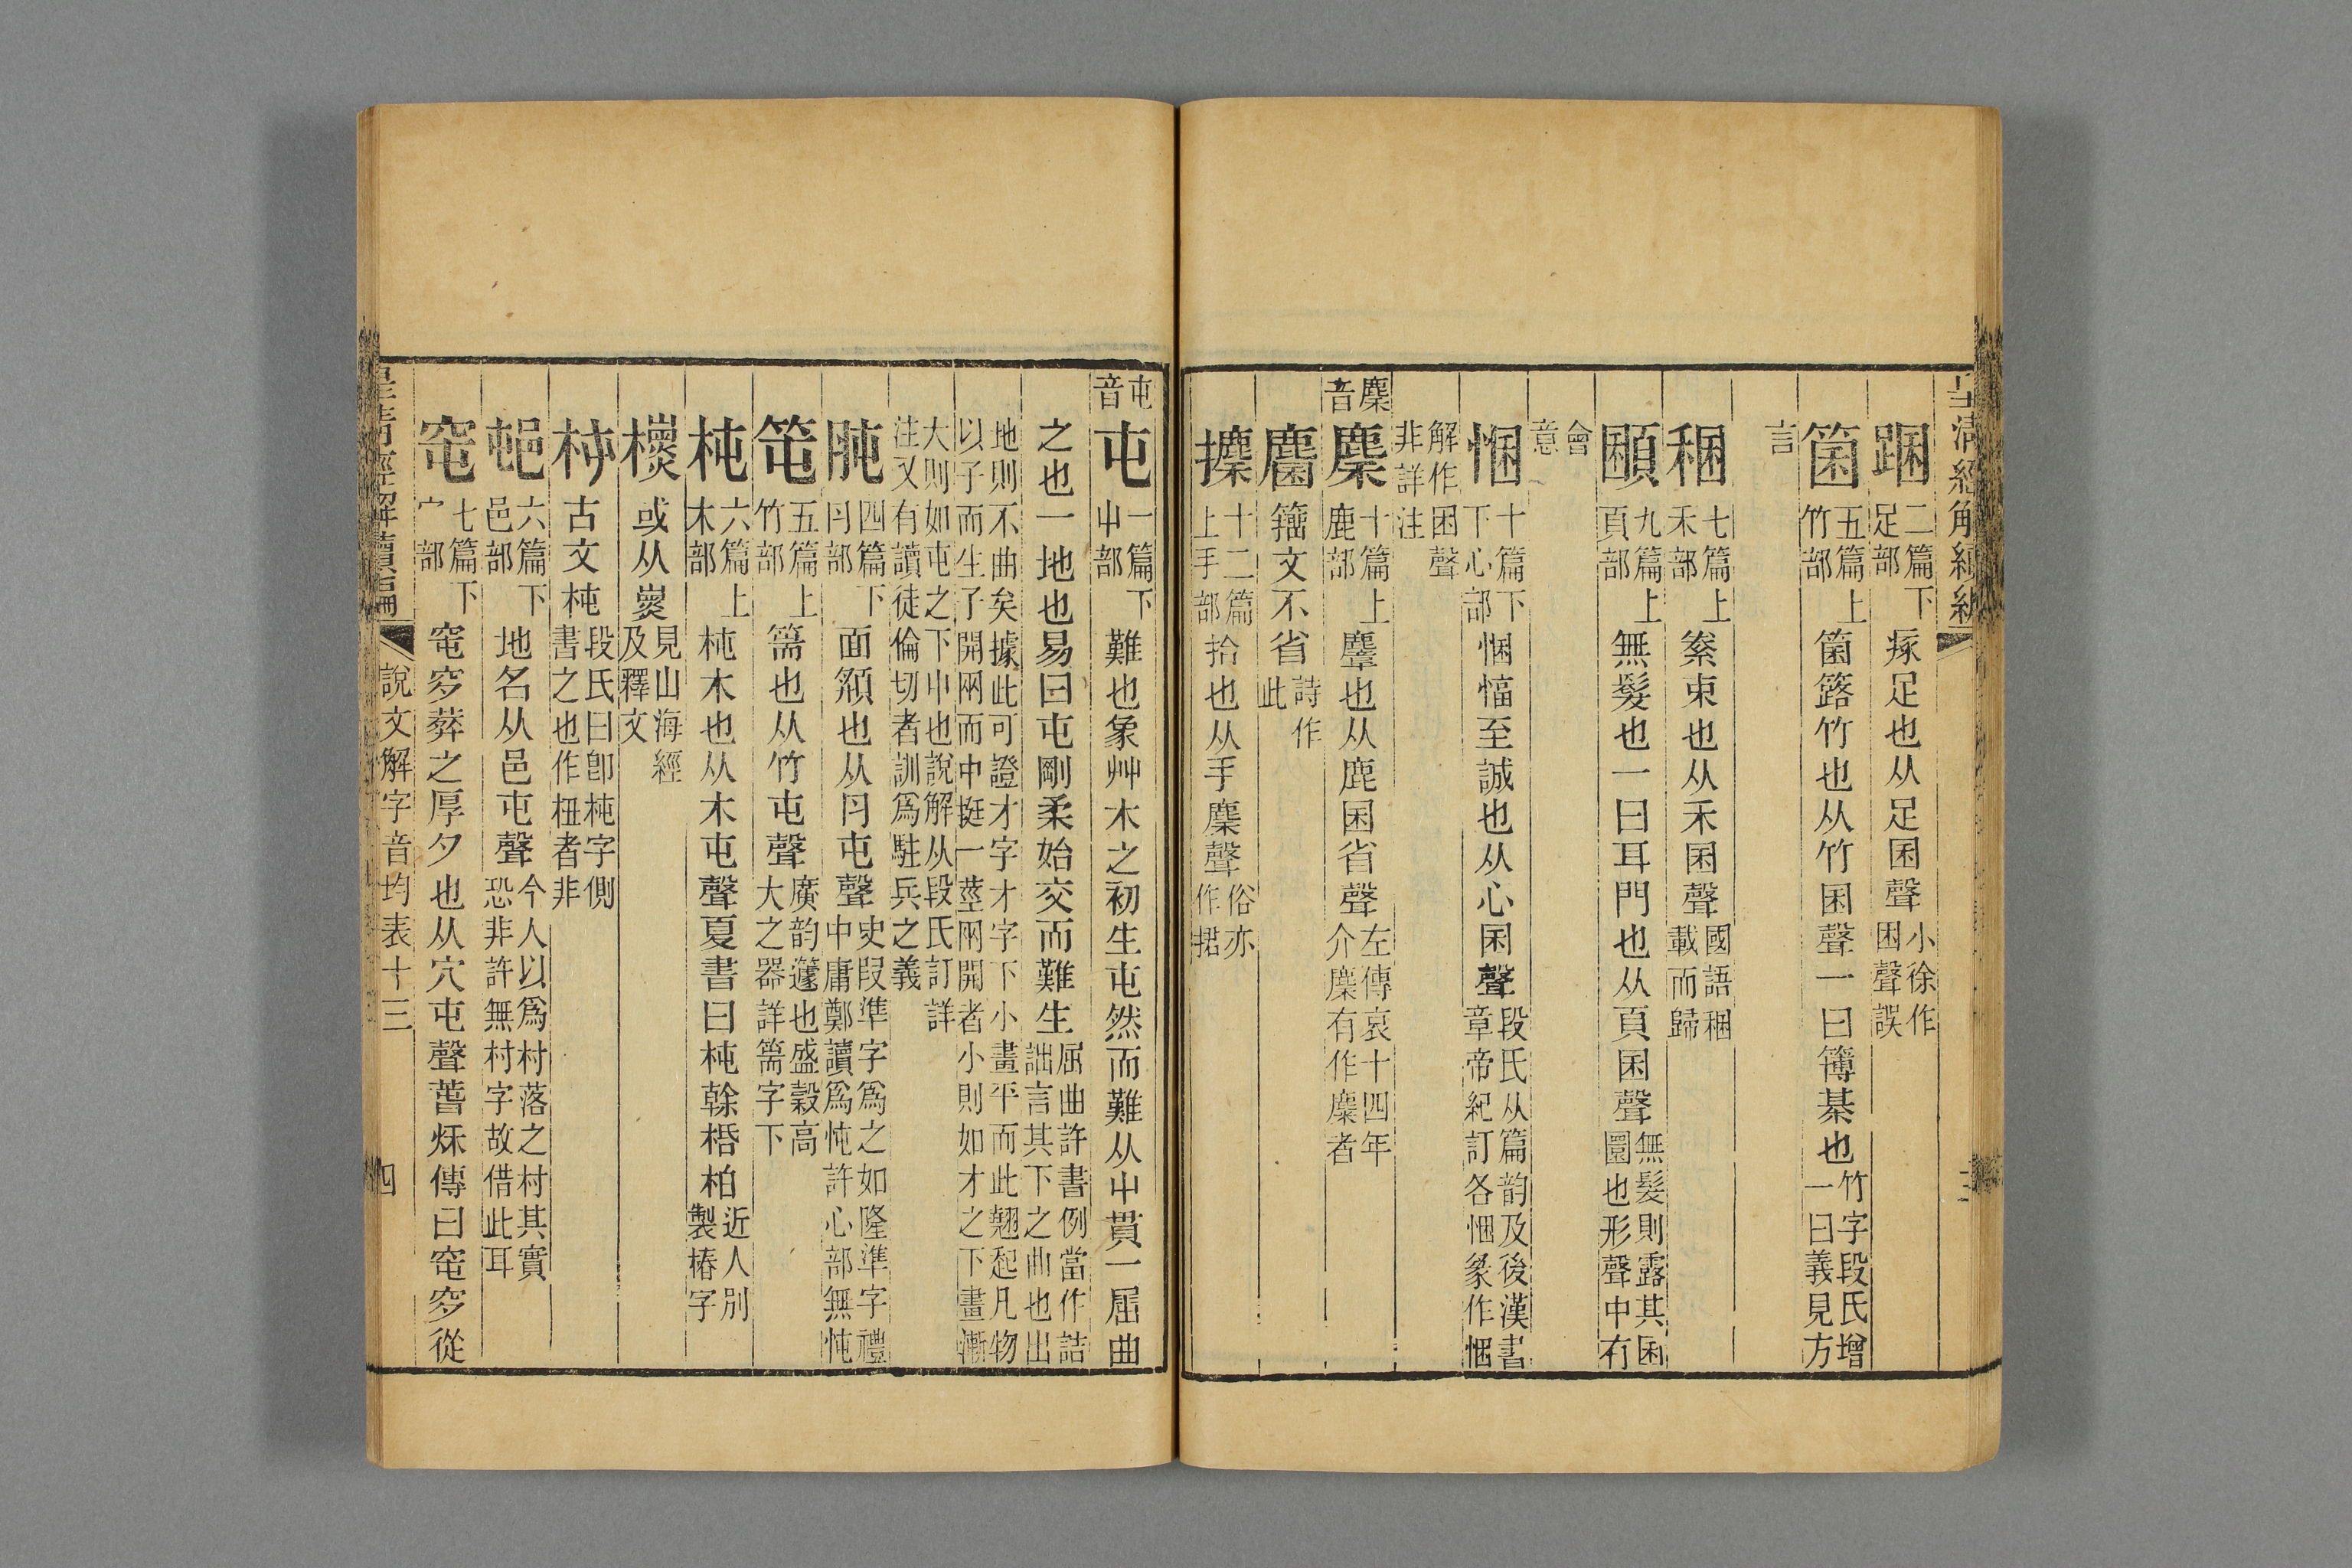 皇清經解續編
踞 二篇下足部 瘃足也从足困聲 小徐作困聲誤
箘 五篇上竹部 箘簬竹也从竹囷聲一曰簿棊也 竹字段氏增一曰義見方
言
稛 七篇上禾部 絭束也从禾囷聲 國語稛載而歸
頵 九篇上頁部 無髮也一曰耳門也从頁囷聲 無髮則露其囷圜也形聲中有
會意
悃 十篇下心部 悃愊至誠也从心困聲 段氏从篇韵及後漢書章帝紀訂各悃篆作悃
解作困聲非詳注
麇音
麇 十篇上鹿部 麞也从鹿囷省聲 左傳哀十四年介麇有作麋者
麕 籀文不省 詩作此
攈 十二篇上手部 拾也从手麇聲 俗亦作捃
屯音
屯 一篇下屮部 難也象艸木之初生屯然而難从屮貫一屈曲
之也一地也易曰屯剛柔始交而難生 屈曲許書例當作詰詘言其下之曲也出
地則不曲矣據此可證才字才字下小畫平而此翹起凡物以子而生了開兩而中挺一莖兩開者小則如才之下畫漸
大則如屯之下屮也說解从段氏訂詳注又有讀徒倫切者訓爲駐兵之義
肫 四篇下肉部 面頯也从肉屯聲 史段準字爲之如隆準字禮中庸鄭讀爲忳許心部無忳
笹 五篇上竹部 篅也从竹屯聲 廣韵籧也盛穀高大之器詳篅字下
杶 六篇上木部 杶木也从木屯聲夏書曰杶榦栝柏 近人別製椿字
櫄 或从熏 見山海經及釋文
杻 古文杶 段氏曰卽杶字側書之也作杻者非
邨 六篇下邑部 地名从邑屯聲 今人以爲村落之村其實恐非許無村字故借此耳
窀 七篇下宀部 窀穸葬之厚夕也从穴屯聲萅秌傳曰窀穸從
皇清經解續編
說文解字音均表十三
四